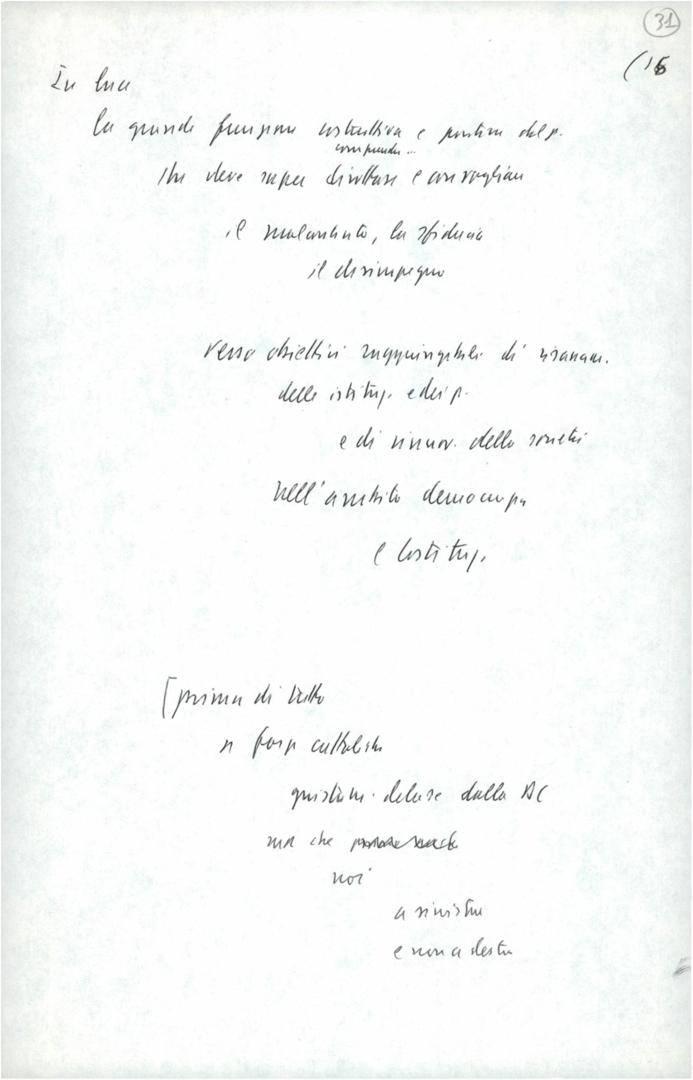 31
(16
In luce
la grande funzione costruttiva e positiva del p.
comprendere...
che deve saper dirottare e convogliare
il malcontento, la sfiducia
il disimpegno
verso obiettivi raggiungibili di risanam.
delle istituz. e dei p.
e di rinnov. della società
nell'ambito democrazia
e Costituz.
[prima di tutto
forze cattoliche
giustam. deluse dalla DC
ma che
noi
a sinistra
e non a destra